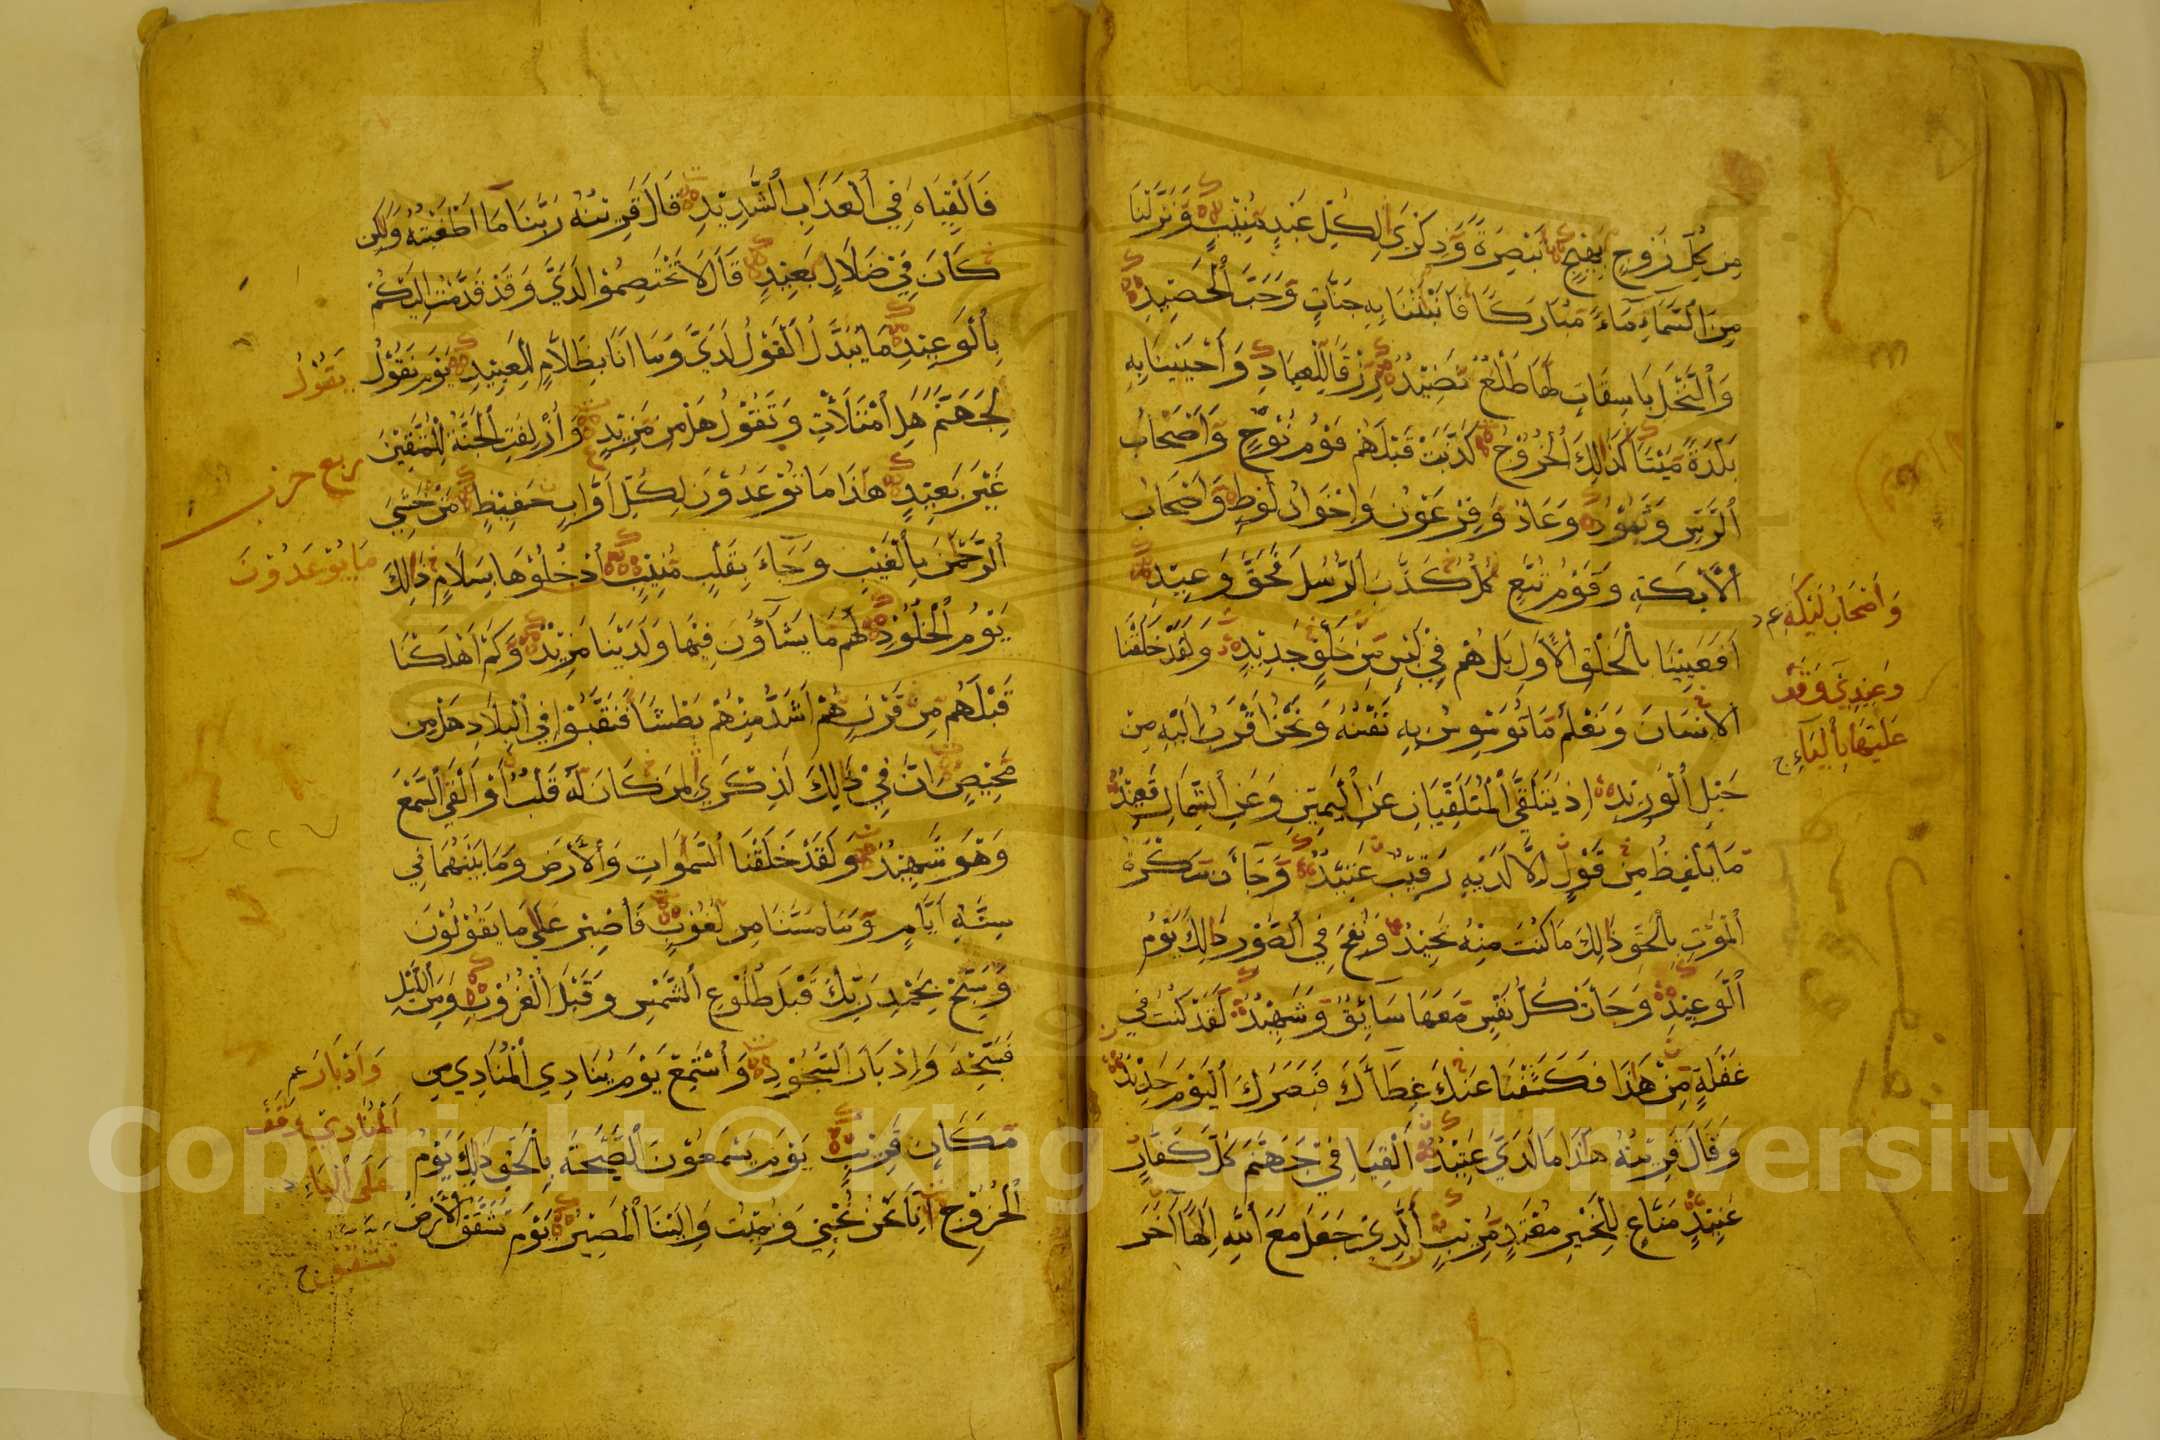 مِن كُلِّ زَوْجٍ بَهِيجٍ تَبْصِرَةً وَذِكْرَى لِكُلِّ عَبْدٍ مُنِيبٍ وَنَزَّلْنَا
مِنَ السَّمَاءِ مَاءً مُبَارَكًا فَأَنْبَتْنَا بِهِ جَنَّاتٍ وَحَبَّ الْحَصِيدِ
وَالنَّخْلَ بَاسِقَاتٍ لَهَا طَلْعٌ نَضِيدٌ رِزْقًا لِلْعِبَادِ وَأَحْيَيْنَا بِهِ
بَلْدَةً مَيْتًا كَذَالِكَ الْخُرُوجُ كَذَّبَتْ قَبْلَهُمْ قَوْمُ نُوحٍ وَأَصْحَابُ
الرَّسِّ وَثَمُودُ وَعَادٌ وَفِرْعَوْنُ وَإِخْوَانُ لُوطٍ وَأَصْحَابُ
الْأَيْكَةِ وَقَوْمُ تُبَّعٍ كُلٌّ كَذَّبَ الرُّسُلَ فَحَقَّ وَعِيدِ
أَفَعَيِينَا بِالْخَلْقِ الْأَوَّلِ بَلْ هُمْ فِي لَبْسٍ مِنْ خَلْقٍ جَدِيدٍ وَلَقَدْ خَلَقْنَا
الْإِنْسَانَ وَنَعْلَمُ مَا تُوَسْوِسُ بِهِ نَفْسُهُ وَنَحْنُ أَقْرَبُ إِلَيْهِ مِنْ
حَبْلِ الْوَرِيدِ إِذْ يَتَلَقَّى الْمُتَلَقِّيَانِ عَنِ الْيَمِينِ وَعَنِ الشِّمَالِ قَعِيدٌ
مَا يَلْفِظُ مِنْ قَوْلٍ إِلَّا لَدَيْهِ رَقِيبٌ عَتِيدٌ وَجَاءَتْ سَكْرَةُ
الْمَوْتِ بِالْحَقِّ ذَالِكَ مَا كُنْتَ مِنْهُ تَحِيدُ وَنُفِخَ فِي الصُّورِ ذَالِكَ يَوْمُ
الْوَعِيدِ وَجَاءَتْ كُلُّ نَفْسٍ مَعَهَا سَائِقٌ وَشَهِيدٌ لَقَدْ كُنْتَ فِي
غَفْلَةٍ مِنْ هَذَا فَكَشَفْنَا عَنْكَ غِطَاءَكَ فَبَصَرُكَ الْيَوْمَ حَدِيدٌ
وَقَالَ قَرِينُهُ هَذَا مَا لَدَيَّ عَتِيدٌ أَلْقِيَا فِي جَهَنَّمَ كُلَّ كَفَّارٍ
عَنِيدٍ مَنَّاعٍ لِلْخَيْرِ مُعْتَدٍ مُرِيبٍ الَّذِي جَعَلَ مَعَ اللَّهِ إِلَهًا آخَرَ
وَأَصْحَابُ لَيْكَةَ عم د
وَعِيدِي وَقَفَ
عَلَيْهَا بِالْيَاءِ ج
فَأَلْقِيَاهُ فِي الْعَذَابِ الشَّدِيدِ قَالَ قَرِينُهُ رَبَّنَا مَا أَطْغَيْتُهُ وَلَكِنْ
كَانَ فِي ضَلَالٍ بَعِيدٍ قَالَ لَا تَخْتَصِمُوا لَدَيَّ وَقَدْ قَدَّمْتُ إِلَيْكُمْ
بِالْوَعِيدِ مَا يُبَدَّلُ الْقَوْلُ لَدَيَّ وَمَا أَنَا بِظَلَّامٍ لِلْعَبِيدِ يَوْمَ نَقُولُ
لِجَهَنَّمَ هَلِ امْتَلَأْتِ وَتَقُولُ هَلْ مِنْ مَزِيدٍ وَأُزْلِفَتِ الْجَنَّةُ لِلْمُتَّقِينَ
غَيْرَ بَعِيدٍ هَذَا مَا تُوعَدُونَ لِكُلِّ أَوَّابٍ حَفِيظٍ مَنْ خَشِيَ
الرَّحْمَنَ بِالْغَيْبِ وَجَاءَ بِقَلْبٍ مُنِيبٍ ادْخُلُوهَا بِسَلَامٍ ذَالِكَ
يَوْمُ الْخُلُودِ لَهُمْ مَا يَشَاءُونَ فِيهَا وَلَدَيْنَا مَزِيدٌ وَكَمْ أَهْلَكْنَا
قَبْلَهُمْ مِنْ قَرْنٍ هُمْ أَشَدُّ مِنْهُمْ بَطْشًا فَنَقَّبُوا فِي الْبِلَادِ هَلْ مِنْ
مَحِيصٍ إِنَّ فِي ذَالِكَ لَذِكْرَى لِمَنْ كَانَ لَهُ قَلْبٌ أَوْ أَلْقَى السَّمْعَ
وَهُوَ شَهِيدٌ وَلَقَدْ خَلَقْنَا السَّمَوَاتِ وَالْأَرْضَ وَمَا بَيْنَهُمَا فِي
سِتَّةِ أَيَّامٍ وَمَا مَسَّنَا مِنْ لُغُوبٍ فَاصْبِرْ عَلَى مَا يَقُولُونَ
وَسَبِّحْ بِحَمْدِ رَبِّكَ قَبْلَ طُلُوعِ الشَّمْسِ وَقَبْلَ الْغُرُوبِ وَمِنَ اللَّيْلِ
فَسَبِّحْهُ وَإِدْبَارَ السُّجُودِ وَاسْتَمِعْ يَوْمَ يُنَادِي الْمُنَادِي مِنْ
مَكَانٍ قَرِيبٍ يَوْمَ يَسْمَعُونَ الصَّيْحَةَ بِالْحَقِّ ذَالِكَ يَوْمُ
الْخُرُوجِ إِنَّا نَحْنُ نُحْيِي وَنُمِيتُ وَإِلَيْنَا الْمَصِيرُ يَوْمَ تَشَقَّقُ الْأَرْضُ
يَقُولُ
ربع حزب
مَا يُوعَدُونَ
وَأَدْبَارَ عم
الْمُنَادِي وَقَفَ
عَلَى الْيَاءِ د
تَشَّقَّقُ ج
Copyright © King Saud University